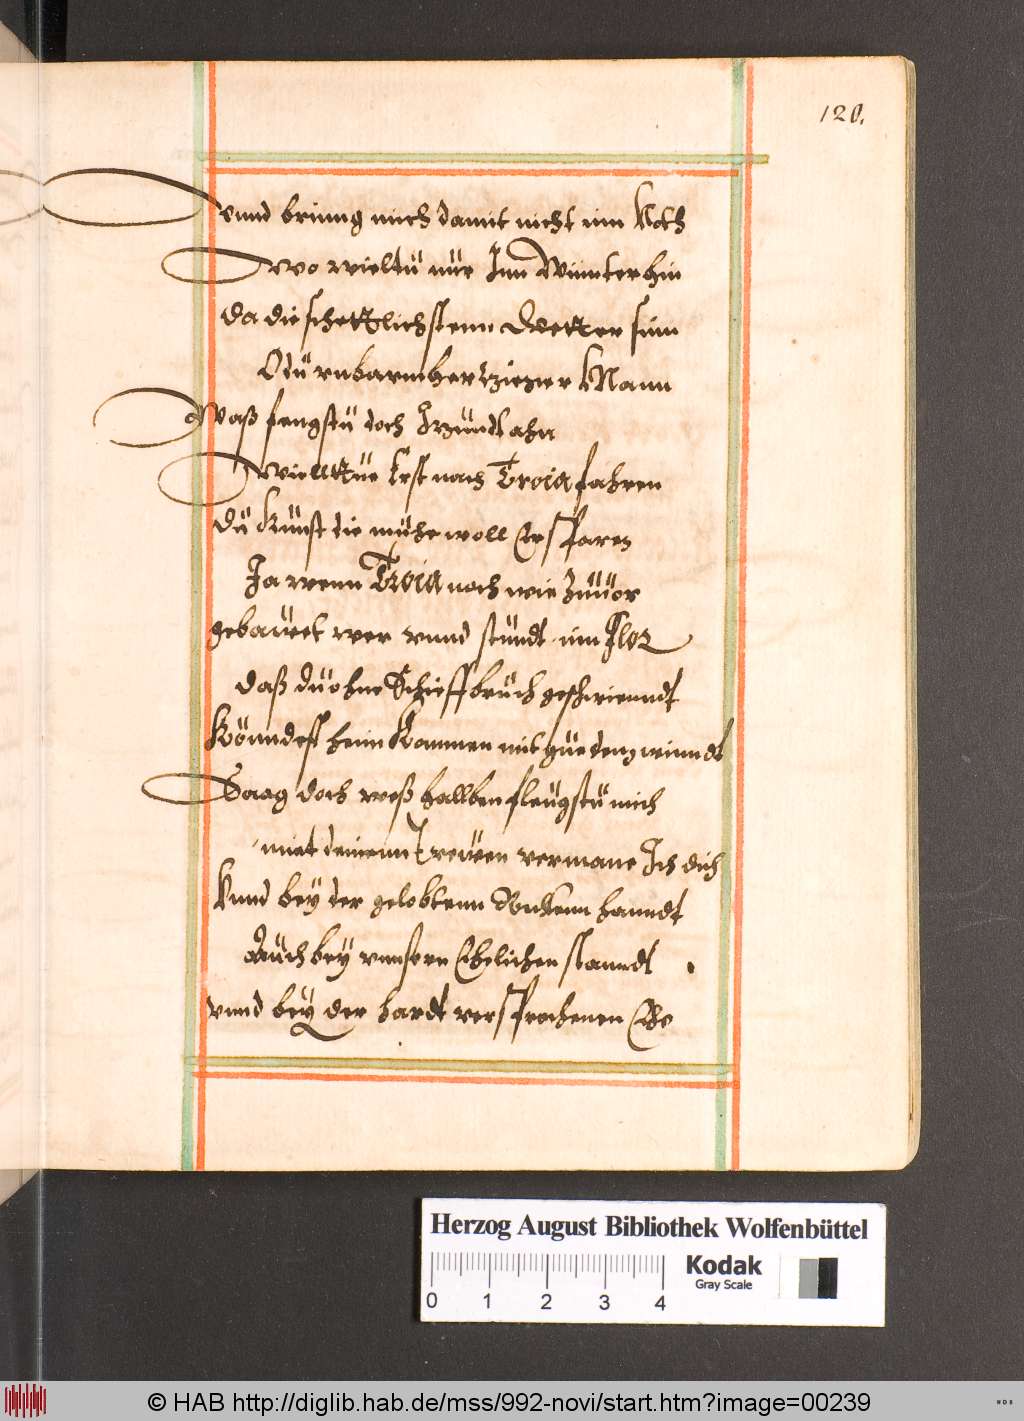 120.
vnnd brinng mich damit nicht inn Noth
Wo wieltu nur Inn Winnter hin
da die schettlichstenn Wetter sein
O du vnbarmherziger Mann
Waß fengstu doch Izundt ahn
Wiellttu Erst nach Troia fahren
du kunst die mühe woll Ersparen
Ja wenn Troia noch wie zuuor
gebauet wer vnnd stundt inn Flor
daß du ohne Schieffbruch geschwienndt
Könndest heim kommen mit guten winndt
Saag doch weß hallben fleugstu mich
miet deinenn Treuen vermane Ich dich
Vnnd bey der gelobtenn hanndt
Auch bey vnnsern Ehelichen standt
vnnd bey der hardt versprochenen Ehe
Herzog August Bibliothek Wolfenbüttel
Kodak
Gray Scale
0 1 2 3 4
© HAB http://diglib.hab.de/mss/992-novi/start.htm?image=00239